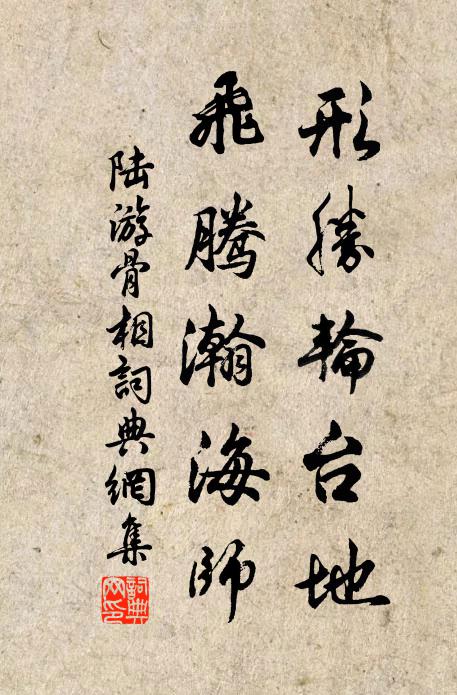 形勝輪台地
飛騰瀚海師
陆游骨相詞典網集
詞典
文印